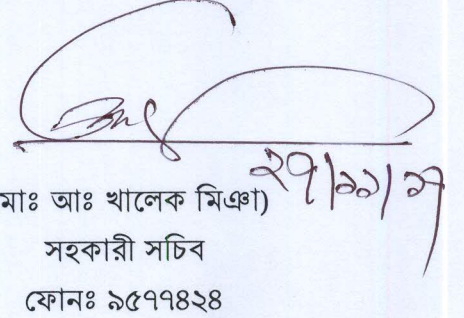 ২৭/১১/১৭
মাঃ আঃ খালেক মিঞা)
সহকারী সচিব
ফোনঃ ৯৫৭৭৪২৪